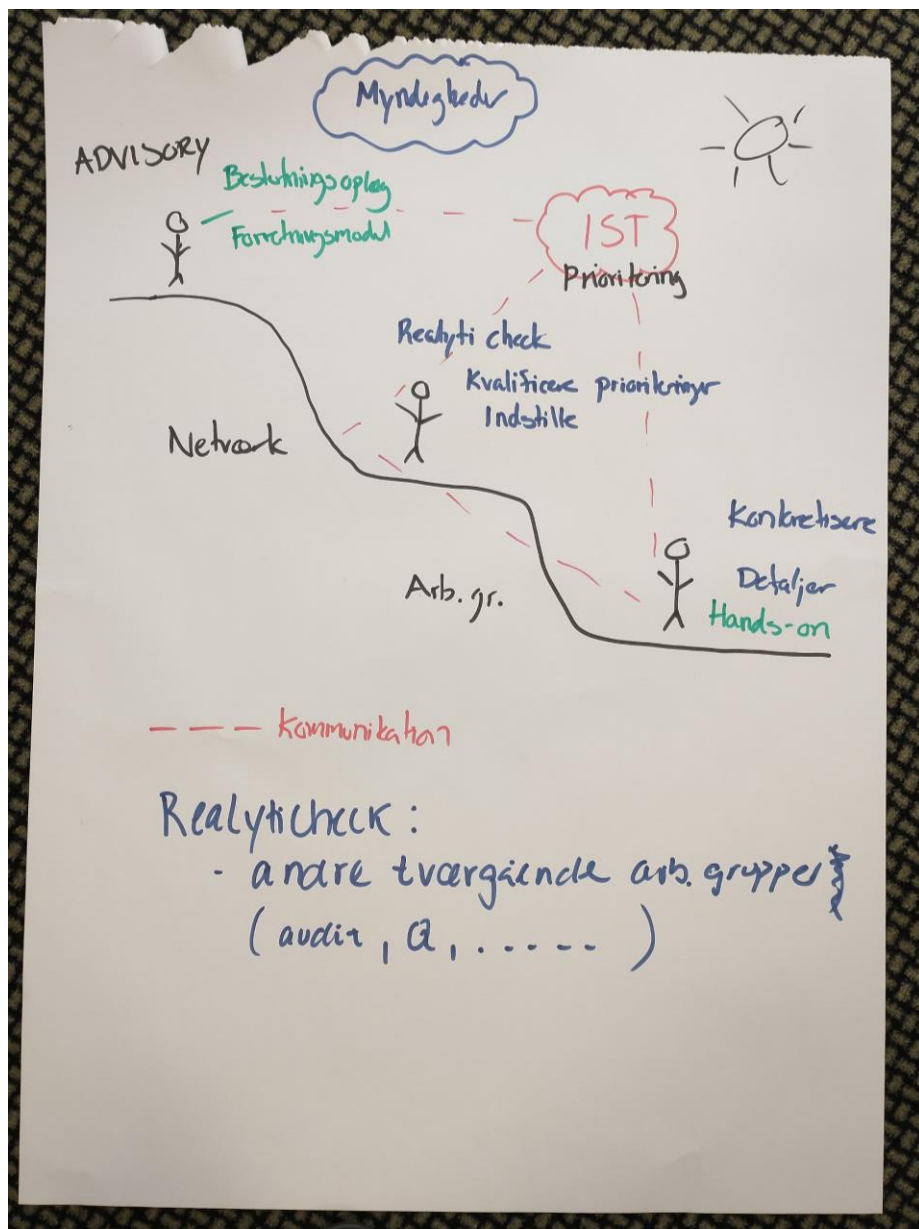 Myndigheder
ADVISORY
Beslutningsoplæg
Forretningsmodel
IST
Prioritering
Realyti check
Kvalificere prioriteringer
Indstille
Netværk
Konkretisere
Arb. gr.
Detaljer
Hands-on
--- Kommunikation
Realyticheck :
- andre tværgående arb. grupper
( audit , Q , ..... )